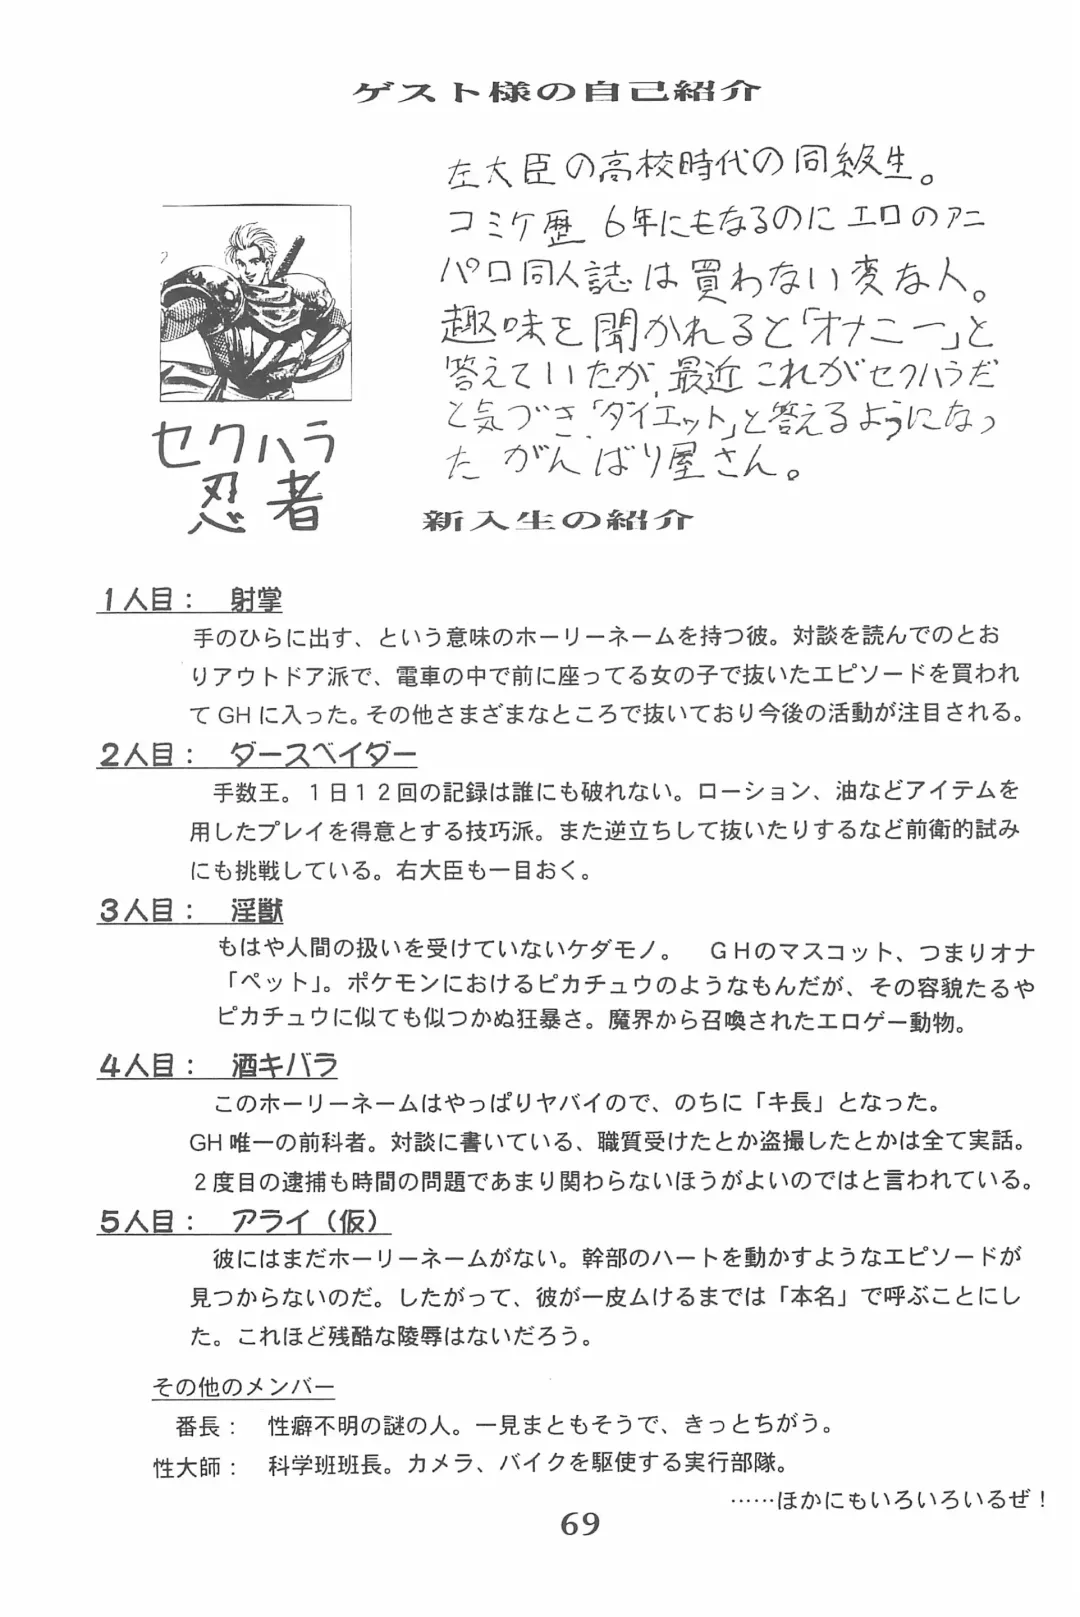 ゲスト様の自己紹介
左大臣の高校時代の同級生。
コミケ歴 6年にもなるのにエロのアニ
パロ同人誌は買わない変な人。
趣味を聞かれると「オナニー」と
答えていたが、最近これがセクハラだ
と気づき、「ダイエット」と答えるようになっ
た がんばり屋さん。
セクハラ
忍者
新入生の紹介
1人目： 射掌
手のひらに出す、という意味のホーリーネームを持つ彼。対談を読んでのとお
りアウトドア派で、電車の中で前に座ってる女の子で抜いたエピソードを買われ
て GH に入った。その他さまざまなところで抜いており今後の活動が注目される。
2人目： ダースベイダー
手数王。1日12回の記録は誰にも破れない。ローション、油などアイテムを
用したプレイを得意とする技巧派。また逆立ちして抜いたりするなど前衛的試み
にも挑戦している。右大臣も一目おく。
3人目： 淫獣
もはや人間の扱いを受けていないケダモノ。 GHのマスコット、つまりオナ
「ペット」。ポケモンにおけるピカチュウのようなもんだが、その容貌たるや
ピカチュウに似ても似つかぬ狂暴さ。魔界から召喚されたエロゲー動物。
4人目： 酒キバラ
このホーリーネームはやっぱりヤバイので、のちに「キ長」となった。
GH 唯一の前科者。対談に書いている、職質受けたとか盗撮したとかは全て実話。
2度目の逮捕も時間の問題であまり関わらないほうがよいのではと言われている。
5人目： アライ（仮）
彼にはまだホーリーネームがない。幹部のハートを動かすようなエピソードが
見つからないのだ。したがって、彼が一皮ムけるまでは「本名」で呼ぶことにし
た。これほど残酷な陵辱はないだろう。
その他のメンバー
番長： 性癖不明の謎の人。一見まともそうで、きっとちがう。
性大師： 科学班班長。カメラ、バイクを駆使する実行部隊。
……ほかにもいろいろいるぜ！
69